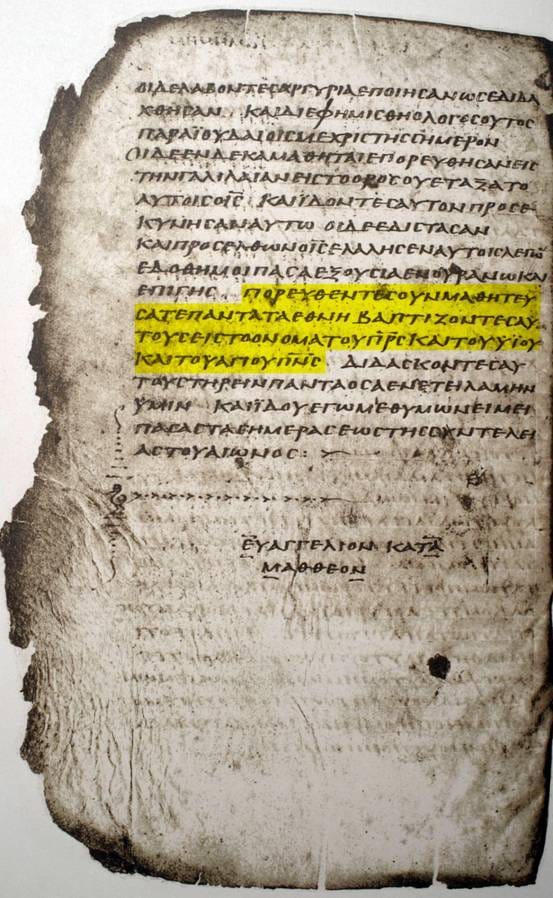 ΟΙΔΕΛΑΒΟΝΤΕΣΑΡΓΥΡΙΑΕΠΟΙΗϹΑΝΩϹΕΔΙΔΑ
ΧΘΗϹΑΝ ΚΑΙΔΙΕΦΗΜΙϹΘΗΟΛΟΓΟϹΟΥΤΟϹ
ΠΑΡΑΪΟΥΔΑΙΟΙϹΜΕΧΡΙΤΗϹϹΗΜΕΡΟΝ
ΟΙΔΕΕΝΔΕΚΑΜΑΘΗΤΑΙΕΠΟΡΕΥΘΗϹΑΝΕΙϹ
ΤΗΝΓΑΛΙΛΑΙΑΝΕΙϹΤΟΟΡΟϹΟΥΕΤΑΞΑΤΟ
ΑΥΤΟΙϹΟΙ̅Ϲ̅ ΚΑΙΪΔΟΝΤΕϹΑΥΤΟΝΠΡΟϹΕ
ΚΥΝΗϹΑΝΑΥΤΩ ΟΙΔΕΕΔΙϹΤΑϹΑΝ
ΚΑΙΠΡΟϹΕΛΘΩΝΟΙ̅Ϲ̅ΕΛΑΛΗϹΕΝΑΥΤΟΙϹΛΕΓΩ̅
ΕΔΟΘΗΜΟΙΠΑϹΑΕΞΟΥϹΙΑΕΝΟΥΡΑΝΩΚΑΙ
ΕΠΙΓΗϹ ΠΟΡΕΥΘΕΝΤΕϹΟΥΝΜΑΘΗΤΕΥ
ϹΑΤΕΠΑΝΤΑΤΑΕΘΝΗ ΒΑΠΤΙΖΟΝΤΕϹΑΥ
ΤΟΥϹΕΙϹΤΟΟΝΟΜΑΤΟΥΠ̅Ρ̅Ϲ̅ΚΑΙΤΟΥΫΙΟΥ
ΚΑΙΤΟΥΑΓΙΟΥΠ̅Ν̅Ϲ̅ ΔΙΔΑϹΚΟΝΤΕϹΑΥ
ΤΟΥϹΤΗΡΕΙΝΠΑΝΤΑΟϹΑΕΝΕΤΕΙΛΑΜΗΝ
ΫΜΙΝ ΚΑΙΪΔΟΥΕΓΩΜΕΘΥΜΩΝΕΙΜΕΙ
ΠΑϹΑϹΤΑϹΗΜΕΡΑϹΕΩϹΤΗϹϹΥΝΤΕΛΕΙ
ΑϹΤΟΥΑΙΩΝΟϹ:
ΕΥΑΓΓΕΛΙΟΝ ΚΑΤΑ
ΜΑΘΘΕΟΝ